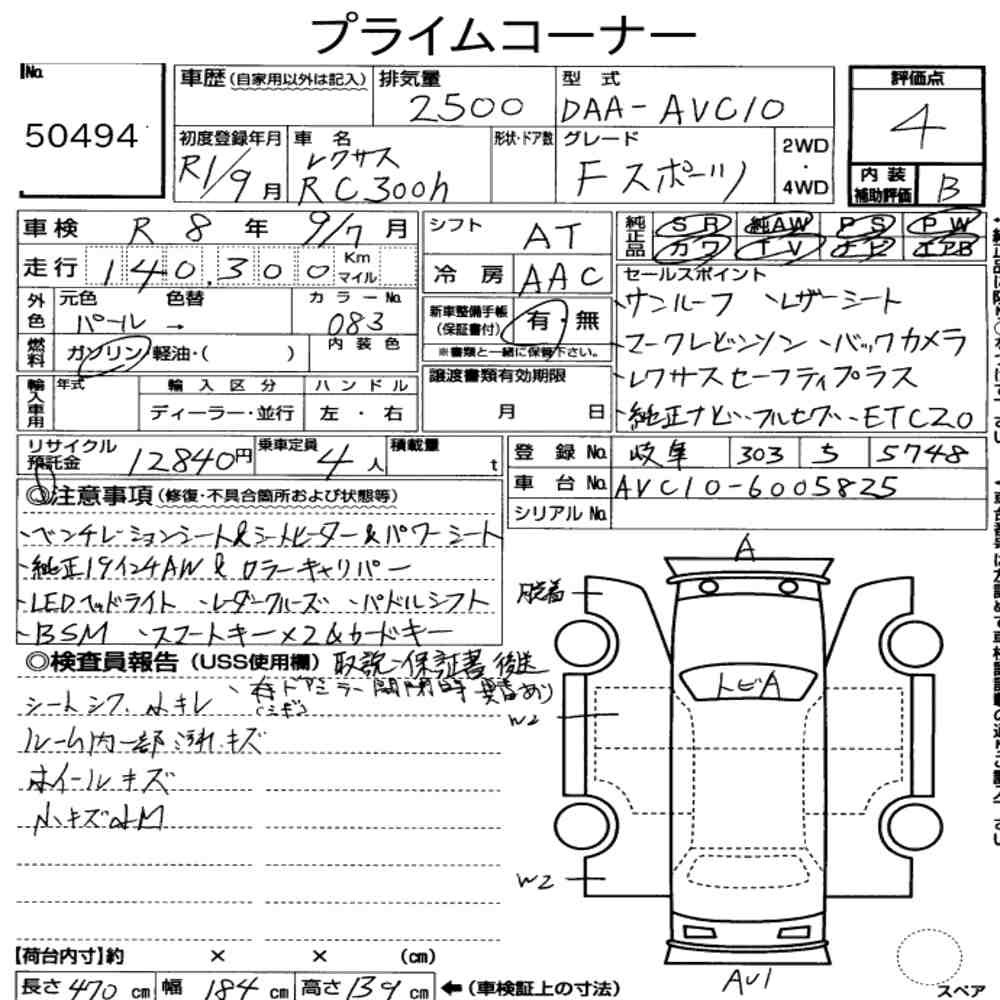 プライムコーナー
No.
50494
車歴 (自家用以外は記入) 排気量 型式
2500 DAA-AVC10
初度登録年月 車名 形状・ドア数 グレード
R1/9月 レクサス RC300h Fスポーツ
2WD ・ 4WD
評価点
4
内装補助評価 B
車検 R8年 9/7月
走行 140,300 Km マイル
外色 元色 色替 カラーNo.
パール → 083
燃料 ガソリン・軽油・( ) 内装色
輸入車用 年式 輸入区分 ハンドル
ディーラー・並行 左・右
シフト AT
冷房 AAC
新車整備手帳(保証書付) 有・無
※書類と一緒に保管下さい。
譲渡書類有効期限
月 日
純正品 SR 純AW PS PW
カワ TV ナビ エアB
セールスポイント
・サンルーフ ・レザーシート
・マークレビンソン ・バックカメラ
・レクサスセーフティプラス
・純正ナビ・フルセグ・ETC2.0
リサイクル預託金 12840円 乗車定員 4人 積載量 t
登録No. 岐阜 303 ち 5748
車台No. AVC10-6005825
シリアルNo.
◎注意事項 (修復・不具合箇所および状態等)
・ベンチレーションシート&シートヒーター&パワーシート
・純正19インチAW & カラーキャリパー
・LEDヘッドライト ・レーダークルーズ ・パドルシフト
・BSM ・スマートキー×2&カードキー
◎検査員報告 (USS使用欄) 取説・保証書 後送
シートシワ、小キレ
・右ドアミラー開閉時 異音あり
ルーム内一部汚れ、キズ
ホイールキズ
小キズ小M
A
脱着
トビA
W2
W2
AU1
スペア
【荷台内寸】約 × × (cm)
長さ 470 cm 幅 184 cm 高さ 139 cm ←(車検証上の寸法)